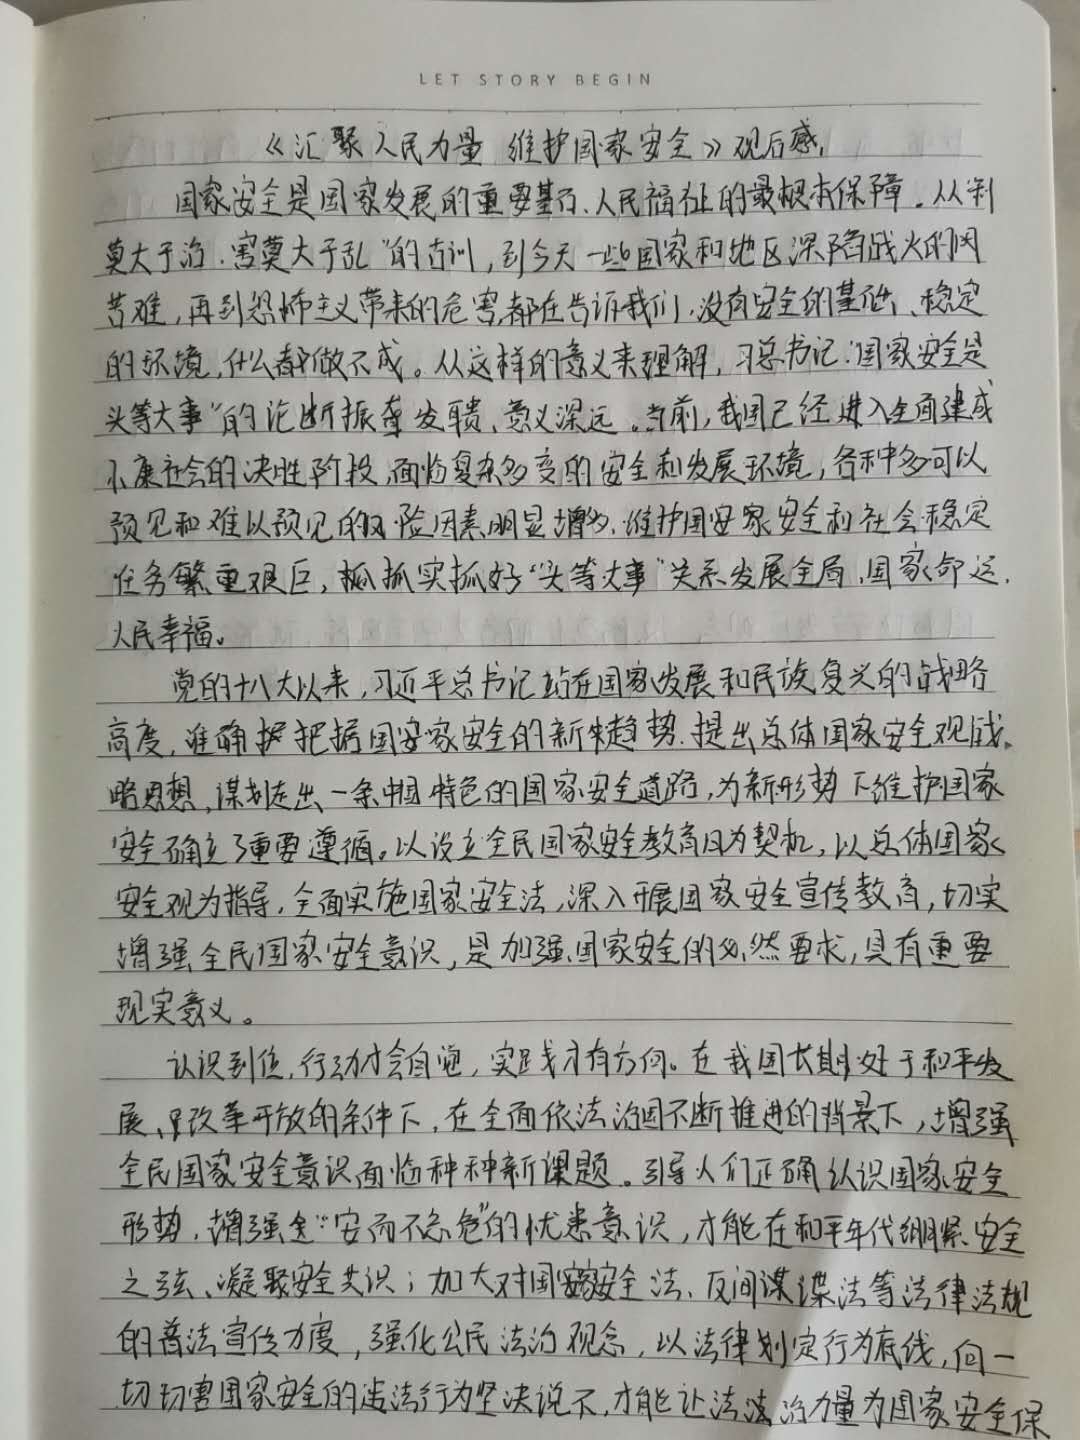 LET STORY BEGIN
《汇聚人民力量 维护国家安全》观后感
国家安全是国家发展的重要基石、人民福祉的最根本保障。从"利
莫大于治，害莫大于乱"的古训，到今天一些国家和地区深陷战火的
苦难，再到恐怖主义带来的危害，都在告诉我们，没有安全的基础、稳定
的环境，什么都做不成。从这样的意义来理解，习总书记"国家安全是
头等大事"的论断振聋发聩、意义深远。当前，我国已经进入全面建成
小康社会的决胜阶段，面临复杂多变的安全和发展环境，各种可以
预见和难以预见的风险因素明显增多，维护国安家安全和社会稳定
任务繁重艰巨，抓实抓好"头等大事"关系发展全局，国家命运，
人民幸福。
党的十八大以来，习近平总书记站在国家发展和民族复兴的战略
高度，准确把握国安家安全的新趋势，提出总体国家安全观战
略思想，谋划走出一条中国特色的国家安全道路，为新形势下维护国家
安全确立了重要遵循。以设立全民国家安全教育日为契机，以总体国家
安全观为指导，全面实施国家安全法，深入开展国家安全宣传教育，切实
增强全民国家安全意识，是加强国家安全的必然要求，具有重要
现实意义。
认识到位，行动才会自觉，实践才有方向。在我国长期处于和平发
展、改革开放的条件下，在全面依法治国不断推进的背景下，增强
全民国家安全意识面临种种新课题。引导人们正确认识国家安全
形势，增强"安而不忘危"的忧患意识，才能在和平年代绷紧安全
之弦、凝聚安全共识；加大对国家安全法、反间谍法等法律法规
的普法宣传力度，强化公民法治观念，以法律划定行为底线，向一
切切害国家安全的违法行为坚决说不，才能让法治力量为国家安全保